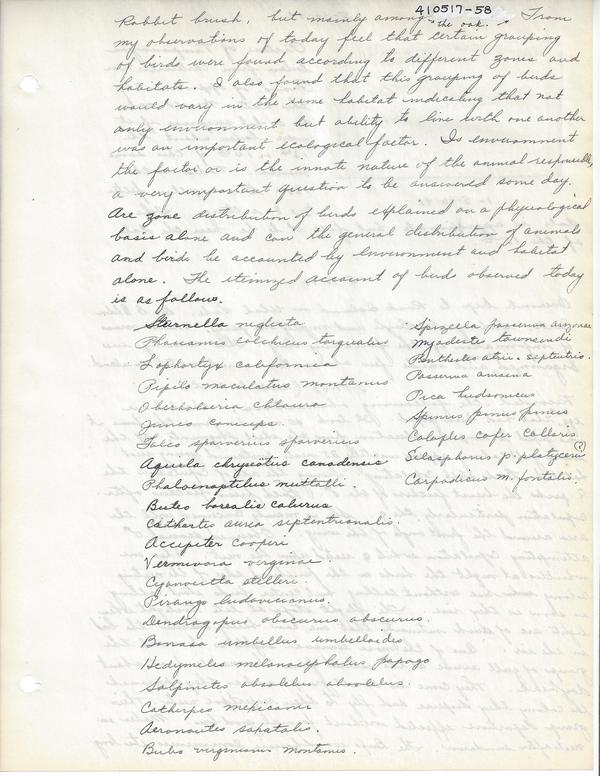 410517-58
Rabbit brush, but mainly among the oak. From
my observations of today feel that certain grouping
of birds were found according to different zones and
habitats. I also found that this grouping of birds
would vary in the same habitat indicating that not
only environment but ability to live with one another
was an important ecological factor. Is environment
the factor or is the innate nature of the animal responsible,
a very important question to be answered some day.
Are zone distribution of birds explained on a physiological
basis alone and can the general distribution of animals
and birds be accounted by environment and habitat
alone. The itemized account of birds observed today
is as follows.
Sturnella neglecta
Phasianus colchicus torquatus
Lophortyx californica
Pipilo maculatus montanus
Oberholseria chlorura
Junco caniceps
Falco sparverius sparverius
Aquila chrysaëtos canadensis
Phalaenoptilus nuttalli.
Buteo borealis calurus
Cathartes aurea septentrionalis.
Accipiter cooperi
Vermivora virginiae.
Cyanocitta stelleri.
Piranga ludovicianus.
Dendragapus obscurus obscurus.
Bonasa umbellus umbelloides
Hedymeles melanocephalus papago
Salpinctes obsoletus obsoletus.
Catherpes mexicanus
Aeronautes saxatalis.
Bubo virginianus montanus.
Spizella passerina arizonae
Myadestes townsendi
Penthestes atri. septentrio.
Passerina amoena
Pica hudsonicus
Spinus pinus pinus
Colaptes cafer collaris
Selasphorus p. platycercus (?)
Carpodacus m. frontalis